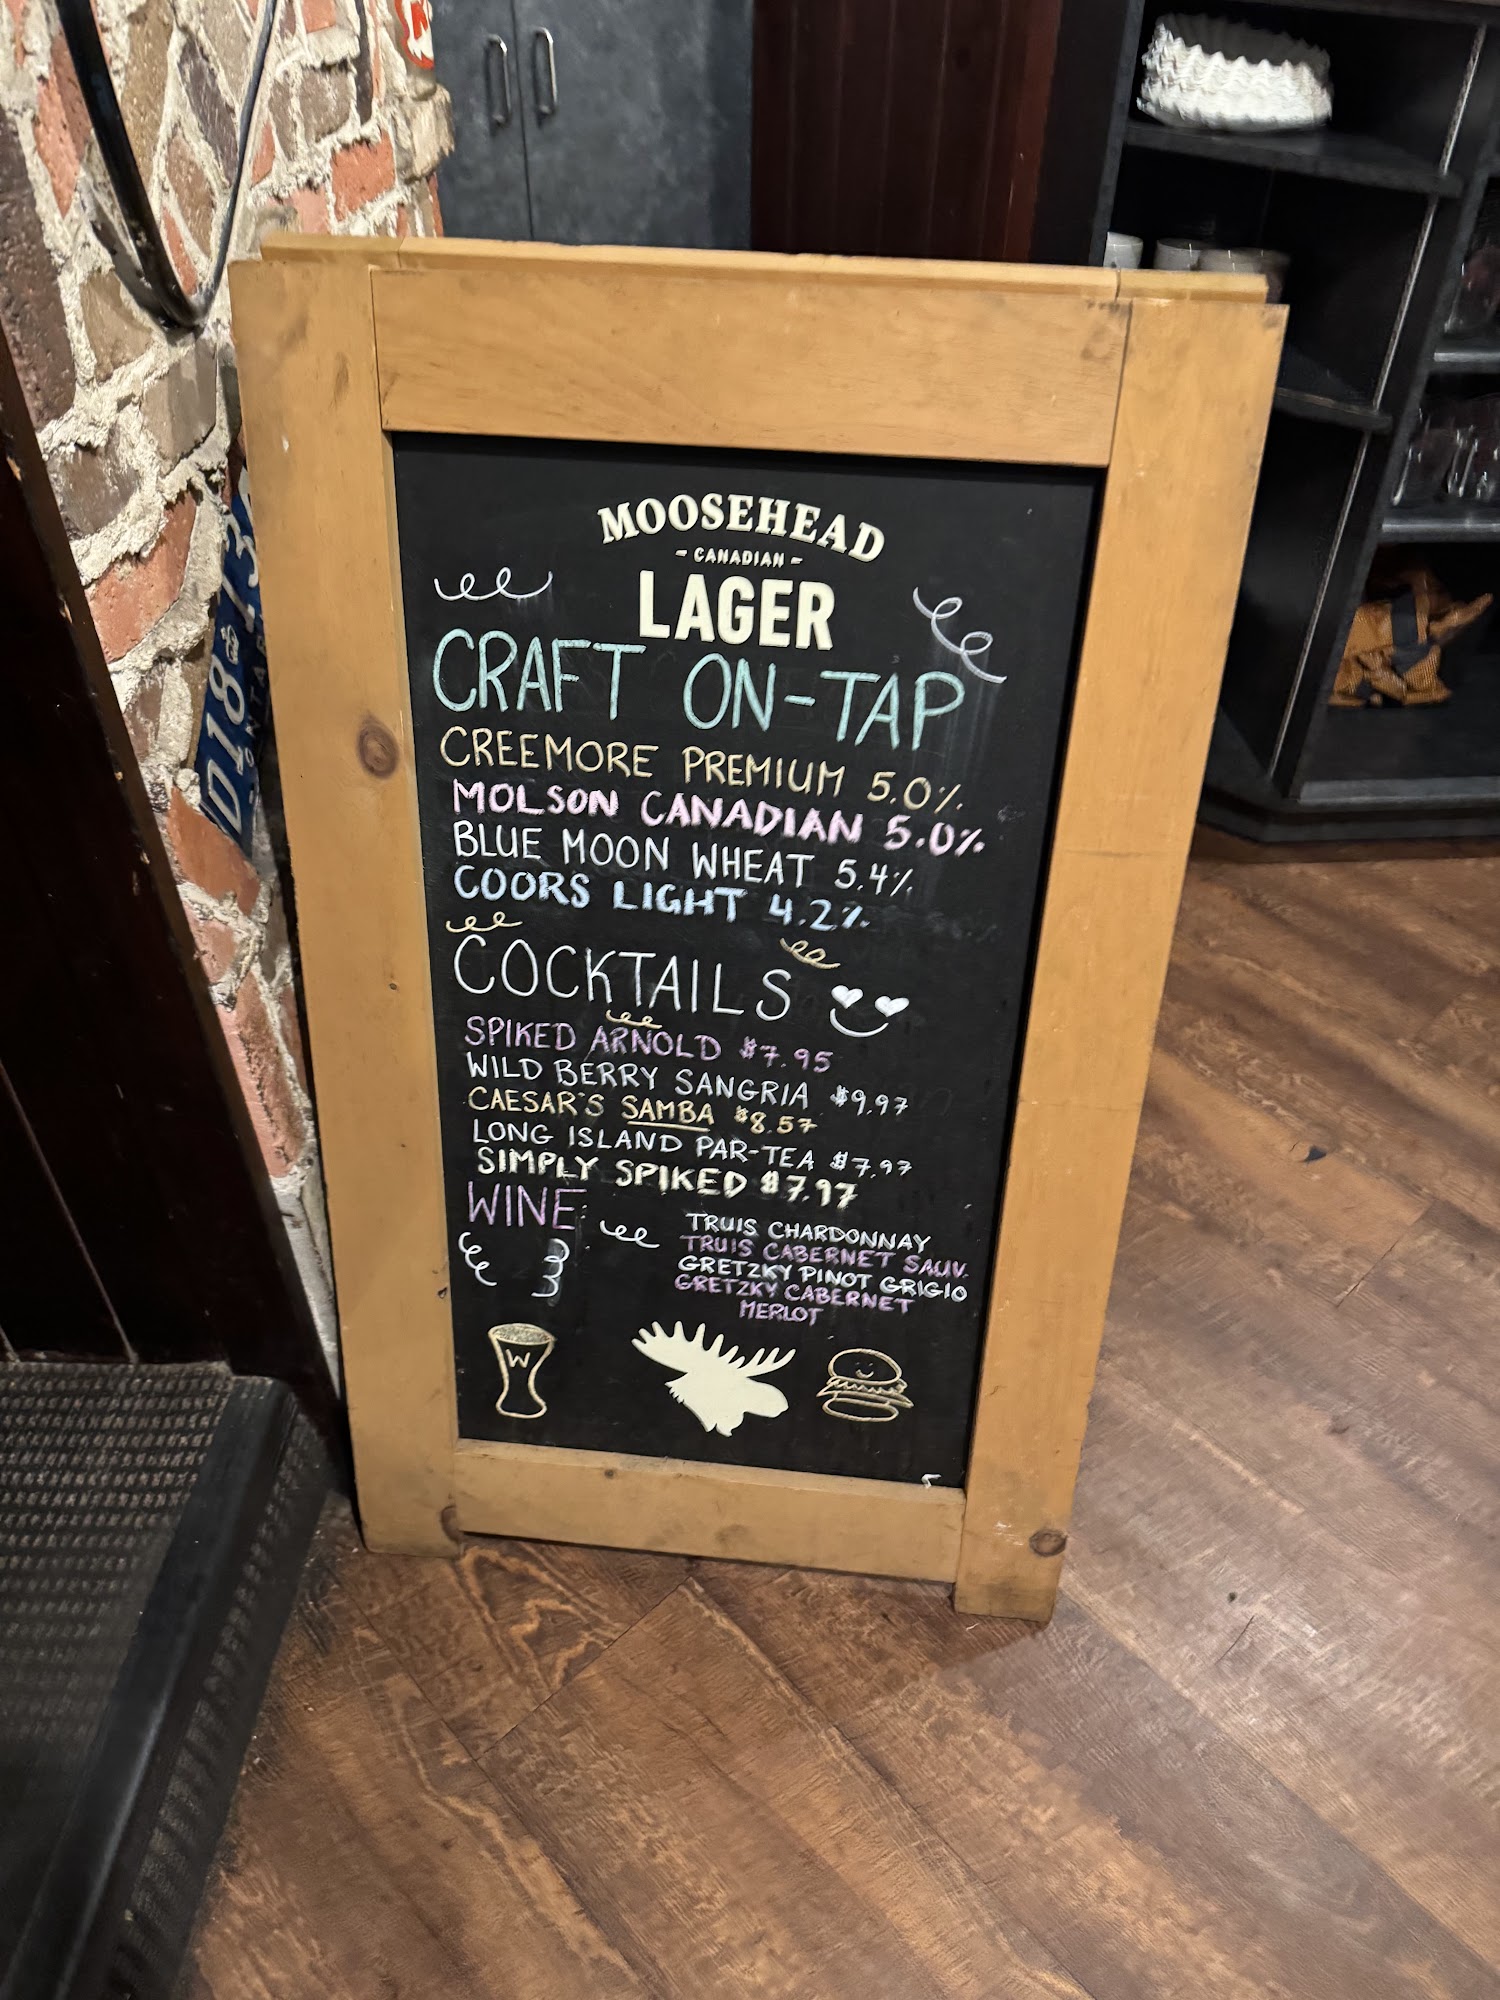 MOOSEHEAD
- CANADIAN -
LAGER
CRAFT ON-TAP
CREEMORE PREMIUM 5.0%
MOLSON CANADIAN 5.0%
BLUE MOON WHEAT 5.4%
COORS LIGHT 4.2%
COCKTAILS
SPIKED ARNOLD $7.95
WILD BERRY SANGRIA $9.97
CAESAR'S SAMBA $8.57
LONG ISLAND PAR-TEA $7.97
SIMPLY SPIKED $7.97
WINE:
TRUIS CHARDONNAY
TRUIS CABERNET SAUV.
GRETZKY PINOT GRIGIO
GRETZKY CABERNET
MERLOT
W